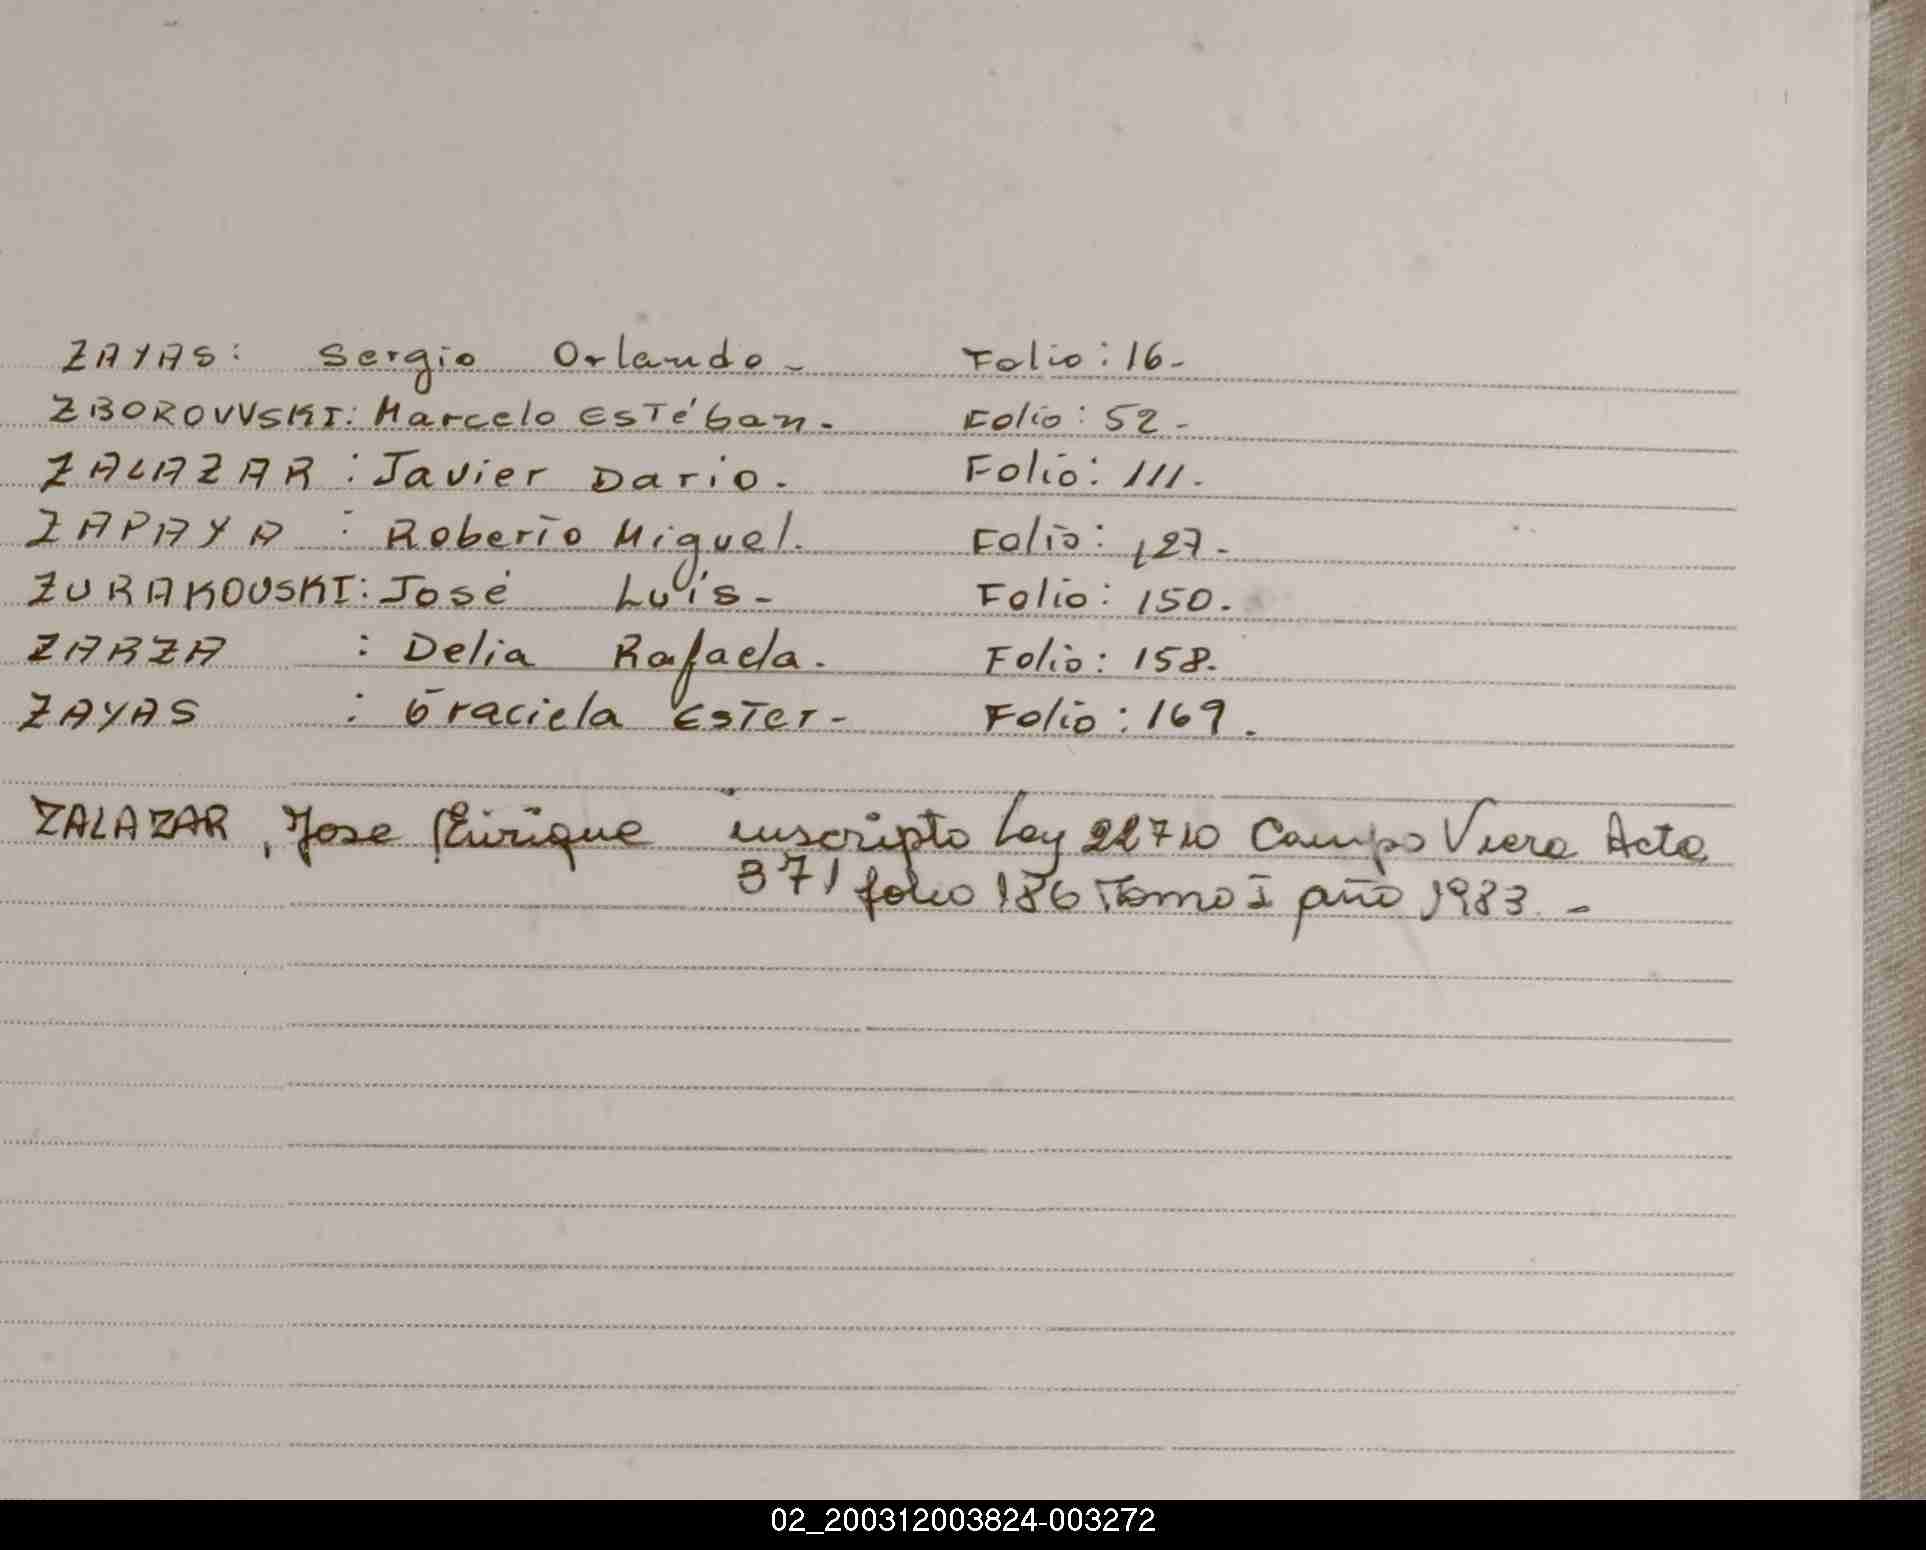 ZAYAS: Sergio Orlando- Folio: 16-
ZBOROVVSKI: Marcelo Estéban. Folio: 52-
ZALAZAR : Javier Dario. Folio: 111.
ZAPAYA : Roberto Miguel. Folio: 127-
ZURAKOUSKI: José Luis- Folio: 150.
ZARZA : Delia Rafaela. Folio: 158.
ZAYAS : Graciela Ester- Folio: 169.
ZALAZAR, Jose Enrique inscripto Ley 22710 Campo Viera Acta
371 folio 186 Tomo I año 1983.-
02_200312003824-003272